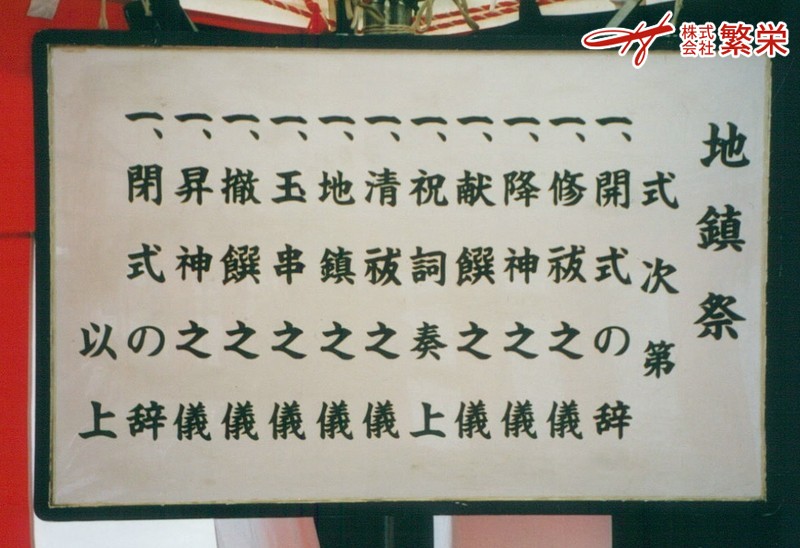 株式会社 繁栄
地鎮祭
式次第
一、開式の辞
一、修祓之儀
一、降神之儀
一、献饌之儀
一、祝詞奏上
一、清祓之儀
一、地鎮之儀
一、玉串之儀
一、撤饌之儀
一、昇神之儀
一、閉式の辞
以上